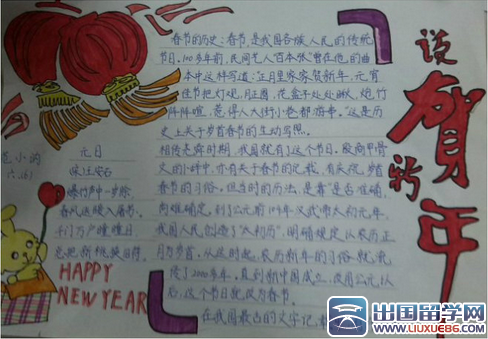 春节的历史：春节，是我国各族人民的传统
节日。100多年前，民间艺人"百本张"曾在他的曲
本中这样写道：正月里家家贺新年，元宵
佳节把灯观，月正圆，花盒子处处瞅，炮竹
阵阵喧，惹得人大街小巷都游串。"这是历
史上关于岁首春节的生动写照。
相传尧舜时期，我国就有了这个节日。殷商甲骨
文的
春节的习俗。但当时的历法，是否准确，
尚难确定，到了公元前104年汉武帝太初元年，
我国人民创造了"太初历"，明确规定以农历正
月为岁首，从这时起，农历新年的习俗就
传了2000多年。直到新中国成立，改用公元以
后，这个节日就改为春节。
在我国最古的文字记
说
贺新年
范小
六
元日
宋 王安石
爆竹声中一岁除，
春风送暖入屠苏。
千门万户曈曈日，
总把新桃换旧符。
HAPPY
NEW YEAR
出国留学网
www.LIUXUE86.com